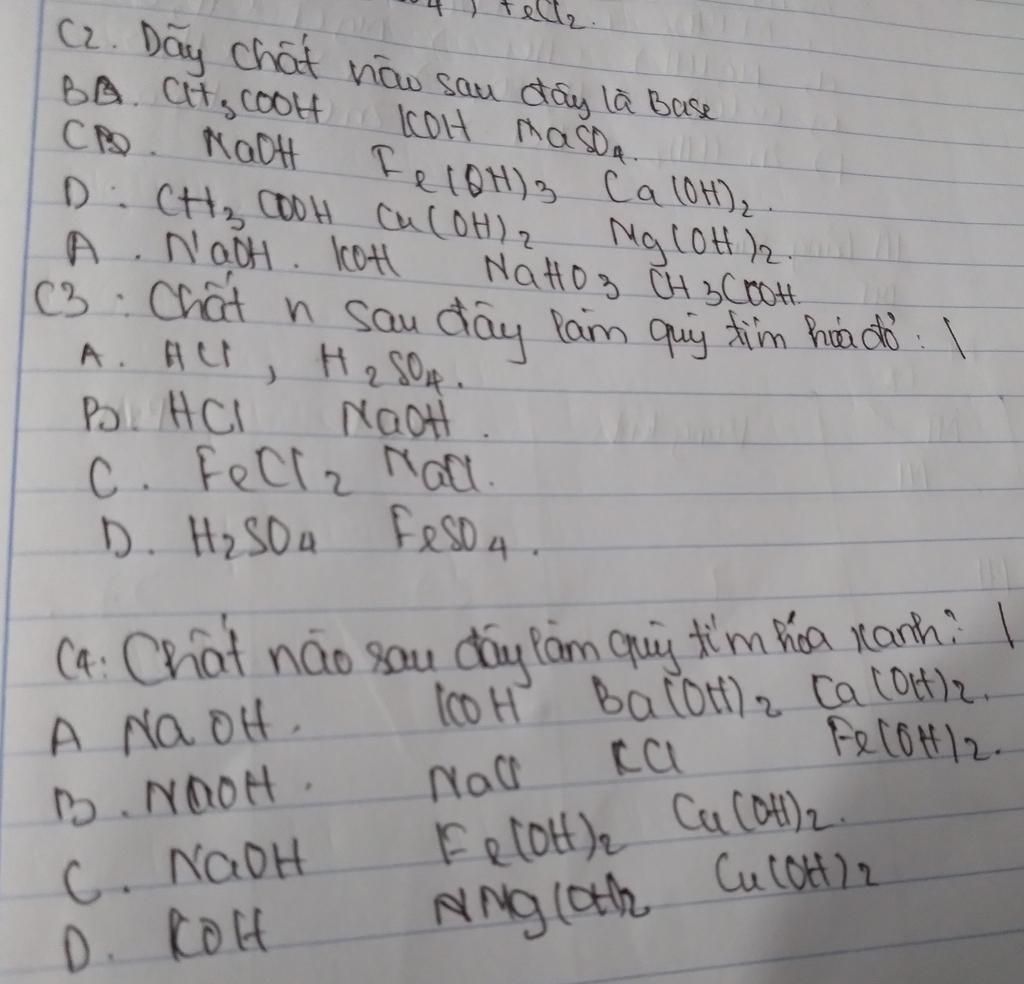 FeCl2.
C2. Dãy chất nào sau đây là Base
BA. CH3COOH KOH NaSO4.
CB. NaOH Fe(OH)3 Ca(OH)2.
D: CH3COOH Cu(OH)2 Mg(OH)2.
A. NaOH. KOH NaHO3 CH3COOH.
C3: Chất n sau đây làm quỳ tím hóa đỏ: 1
A. HCl, H2SO4.
B. HCl NaOH.
C. FeCl2 NaCl.
D. H2SO4 FeSO4.
C4: Chất nào sau đây làm quỳ tím hóa xanh? 1
A NaOH. KOH Ba(OH)2 Ca(OH)2.
B. NaOH. NaCl KCl Fe(OH)2.
C. NaOH Fe(OH)2 Cu(OH)2.
D. KOH Mg(OH)2 Cu(OH)2